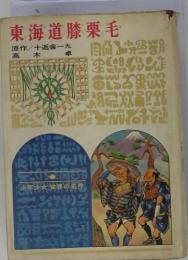 東海道膝栗毛
原作/十返舎一九
高木卓
少年少女世界の名作